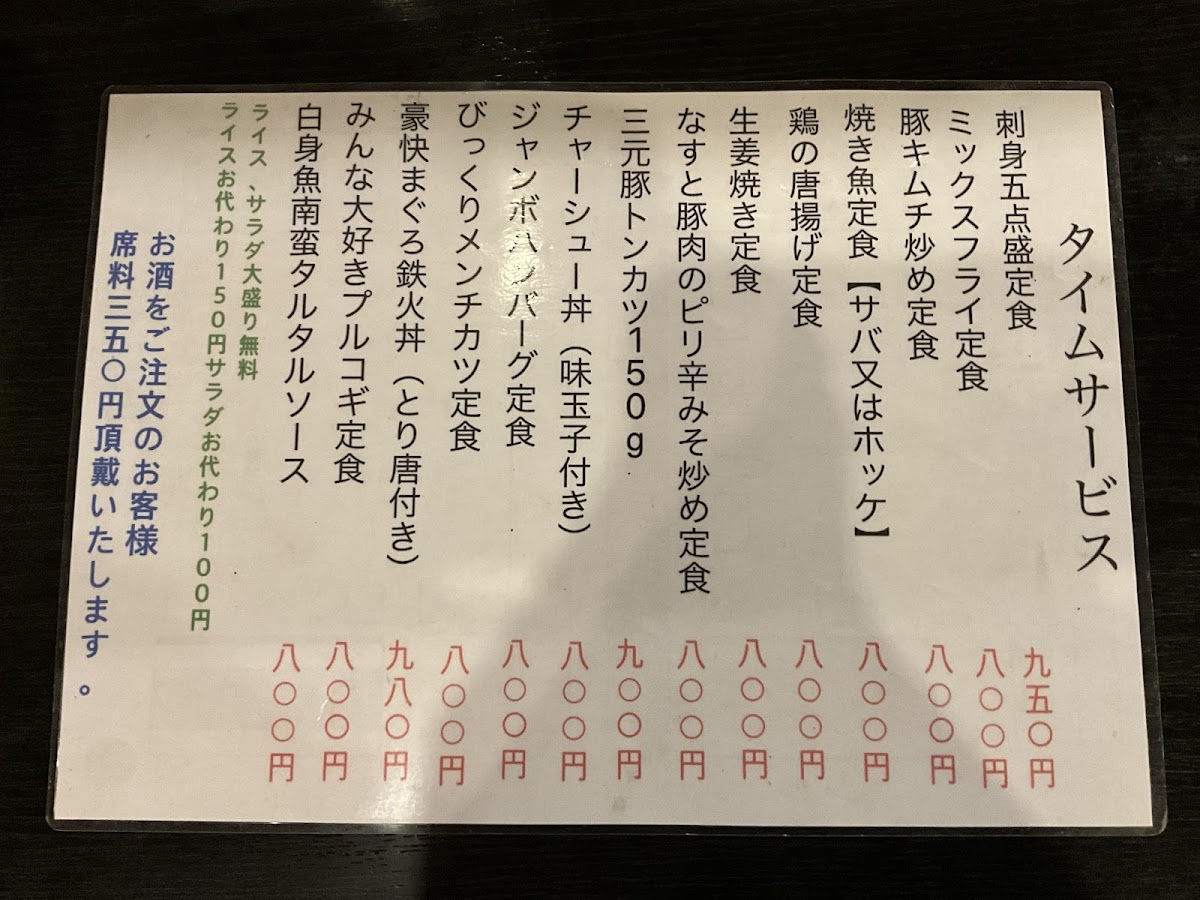 タイムサービス
刺身五点盛定食 九五〇円
ミックスフライ定食 八〇〇円
豚キムチ炒め定食 八〇〇円
焼き魚定食【サバ又はホッケ】 八〇〇円
鶏の唐揚げ定食 八〇〇円
生姜焼き定食 八〇〇円
なすと豚肉のピリ辛みそ炒め定食 八〇〇円
三元豚トンカツ150g 九〇〇円
チャーシュー丼(味玉子付き) 八〇〇円
ジャンボハンバーグ定食 八〇〇円
びっくりメンチカツ定食 八〇〇円
豪快まぐろ鉄火丼(とり唐付き) 九八〇円
みんな大好きプルコギ定食 八〇〇円
白身魚南蛮タルタルソース 八〇〇円
ライス、サラダ大盛り無料
ライスお代わり150円サラダお代わり100円
お酒をご注文のお客様
席料三五〇円頂戴いたします。